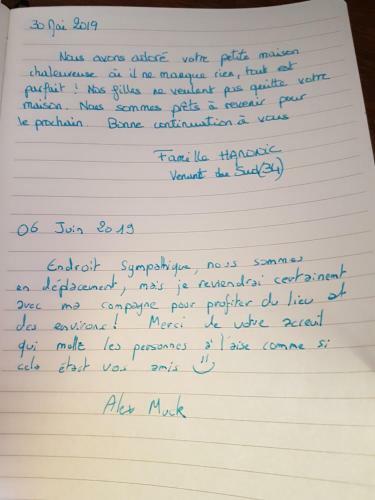 30 Mai 2019
Nous avons adoré votre petite maison
chaleureuse où il ne manque rien, tout est
parfait ! Nos filles ne veulent pas quitte votre
maison. Nous sommes prêts à revenir pour
le prochain. Bonne continuation à vous
Famille
Venant du Sud (34)
06 Juin 2019
Endroit Sympathique, nous sommes
en déplacement, mais je reviendrai certainement
avec ma compagne pour profiter du lieu et
des environs ! Merci de votre accueil
qui mette les personnes à l'aise comme si
cela était vos amis
Alex Muck